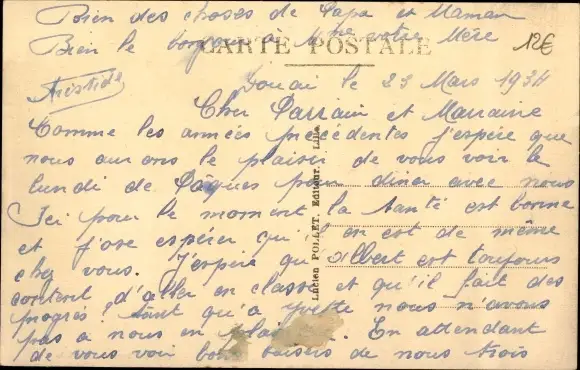 Bien des choses de Papa et Maman
Bien le bonjour a Mme votre Mère
CARTE POSTALE
12€
Aristide
Douai le 23 Mars 1934
Cher Parrain et Marraine
Comme les années précédentes j'espère que
nous aurons le plaisir de vous voir le
lundi de Pâques pour diner avec nous
Ici pour le moment la santé est bonne
et j'ose espérer qu'il en est de même
chez vous. J'espère qu'Albert est toujours
content d'aller en classe et qu'il fait des
progrès tant qu'a Yvette nous n'avons
pas a nous en plaindre. En attendant
de vous voir bons baisers de nous trois
Lucien POLLET, Editeur, Lille